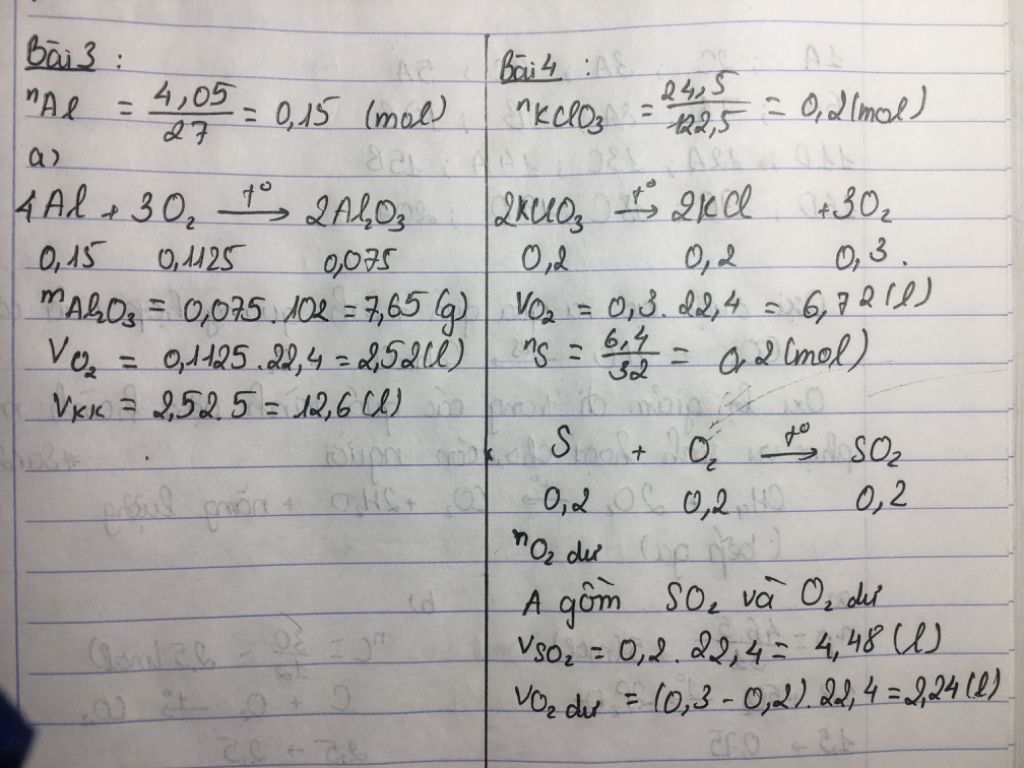 Bài 3 :
nAl = 4,05 / 27 = 0,15 (mol)
a)
4Al + 3O₂ —t°→ 2Al₂O₃
0,15 0,1125 0,075
mAl₂O₃ = 0,075.102 = 7,65 (g)
VO₂ = 0,1125.22,4 = 2,52 (l)
VKK = 2,52.5 = 12,6 (l)
Bài 4 :
nKClO₃ = 24,5 / 122,5 = 0,2 (mol)
2KClO₃ —t°→ 2KCl + 3O₂
0,2 0,2 0,3.
VO₂ = 0,3.22,4 = 6,72 (l)
nS = 6,4 / 32 = 0,2 (mol)
S + O₂ —t°→ SO₂
0,2 0,2 0,2
nO₂ dư
A gồm SO₂ và O₂ dư
VSO₂ = 0,2.22,4 = 4,48 (l)
VO₂ dư = (0,3 - 0,2).22,4 = 2,24 (l)